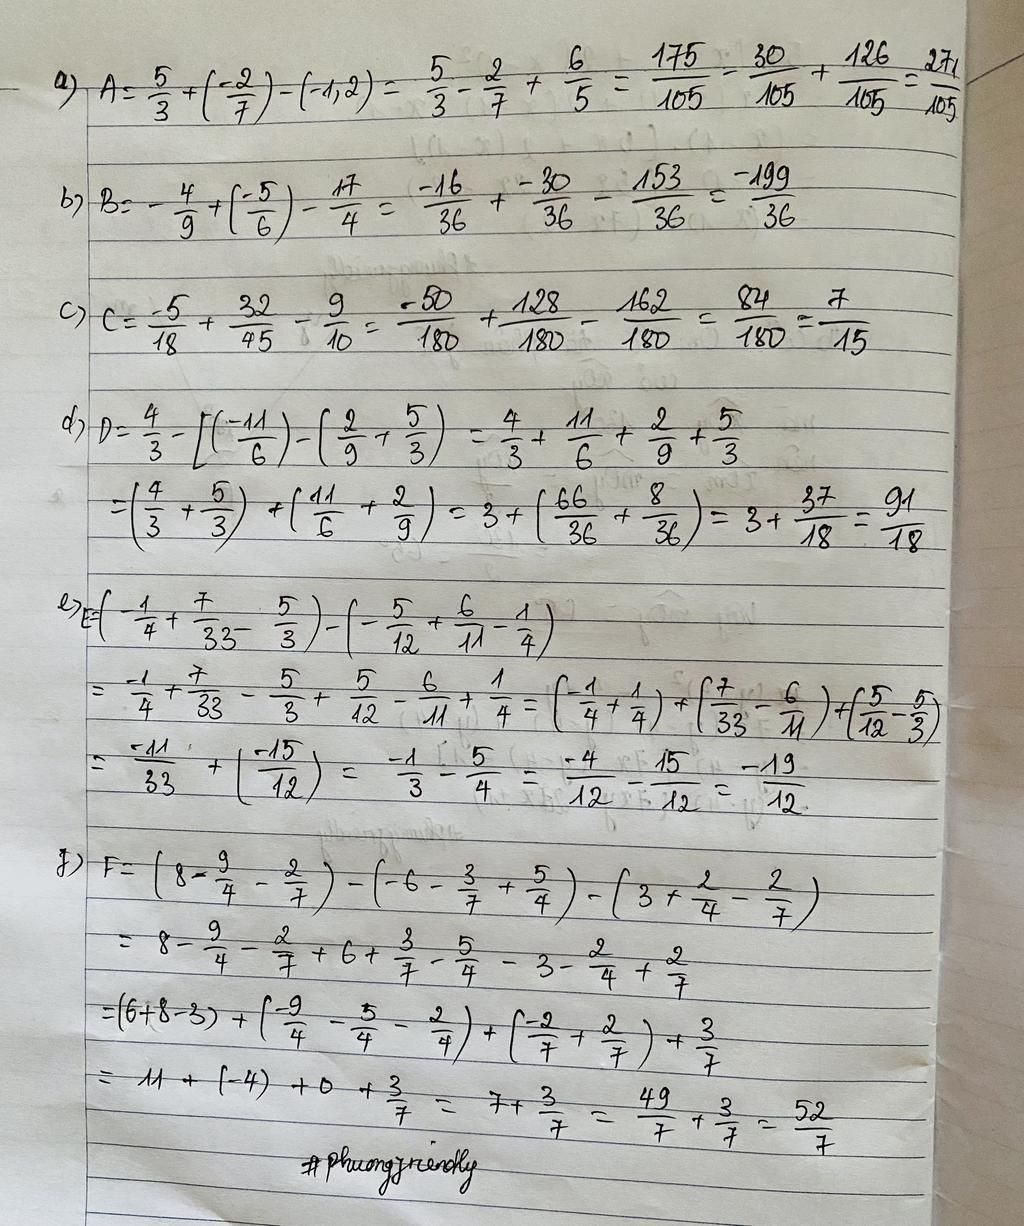 a) A = 5/3 + (-2/7) - (-1,2) = 5/3 - 2/7 + 6/5 = 175/105 - 30/105 + 126/105 = 271/105
b) B = - 4/9 + (-5/6) - 17/4 = -16/36 + -30/36 - 153/36 = -199/36
c) C = -5/18 + 32/45 - 9/10 = -50/180 + 128/180 - 162/180 = 84/180 = 7/15
d) D = 4/3 - [(-11/6) - (2/9 + 5/3) = 4/3 + 11/6 + 2/9 + 5/3
= (4/3 + 5/3) + (11/6 + 2/9) = 3 + (66/36 + 8/36) = 3 + 37/18 = 91/18
e) E = (-1/4 + 7/33 - 5/3) - (-5/12 + 6/11 - 1/4)
= -1/4 + 7/33 - 5/3 + 5/12 - 6/11 + 1/4 = (-1/4 + 1/4) + (7/33 - 6/11) + (5/12 - 5/3)
= -11/33 + (-15/12) = -1/3 - 5/4 = -4/12 - 15/12 = -19/12
f) F = (8 - 9/4 - 2/7) - (-6 - 3/7 + 5/4) - (3 + 2/4 - 2/7)
= 8 - 9/4 - 2/7 + 6 + 3/7 - 5/4 - 3 - 2/4 + 2/7
= (6+8-3) + (-9/4 - 5/4 - 2/4) + (-2/7 + 2/7) + 3/7
= 11 + (-4) + 0 + 3/7 = 7 + 3/7 = 49/7 + 3/7 = 52/7
#phuongfriendly